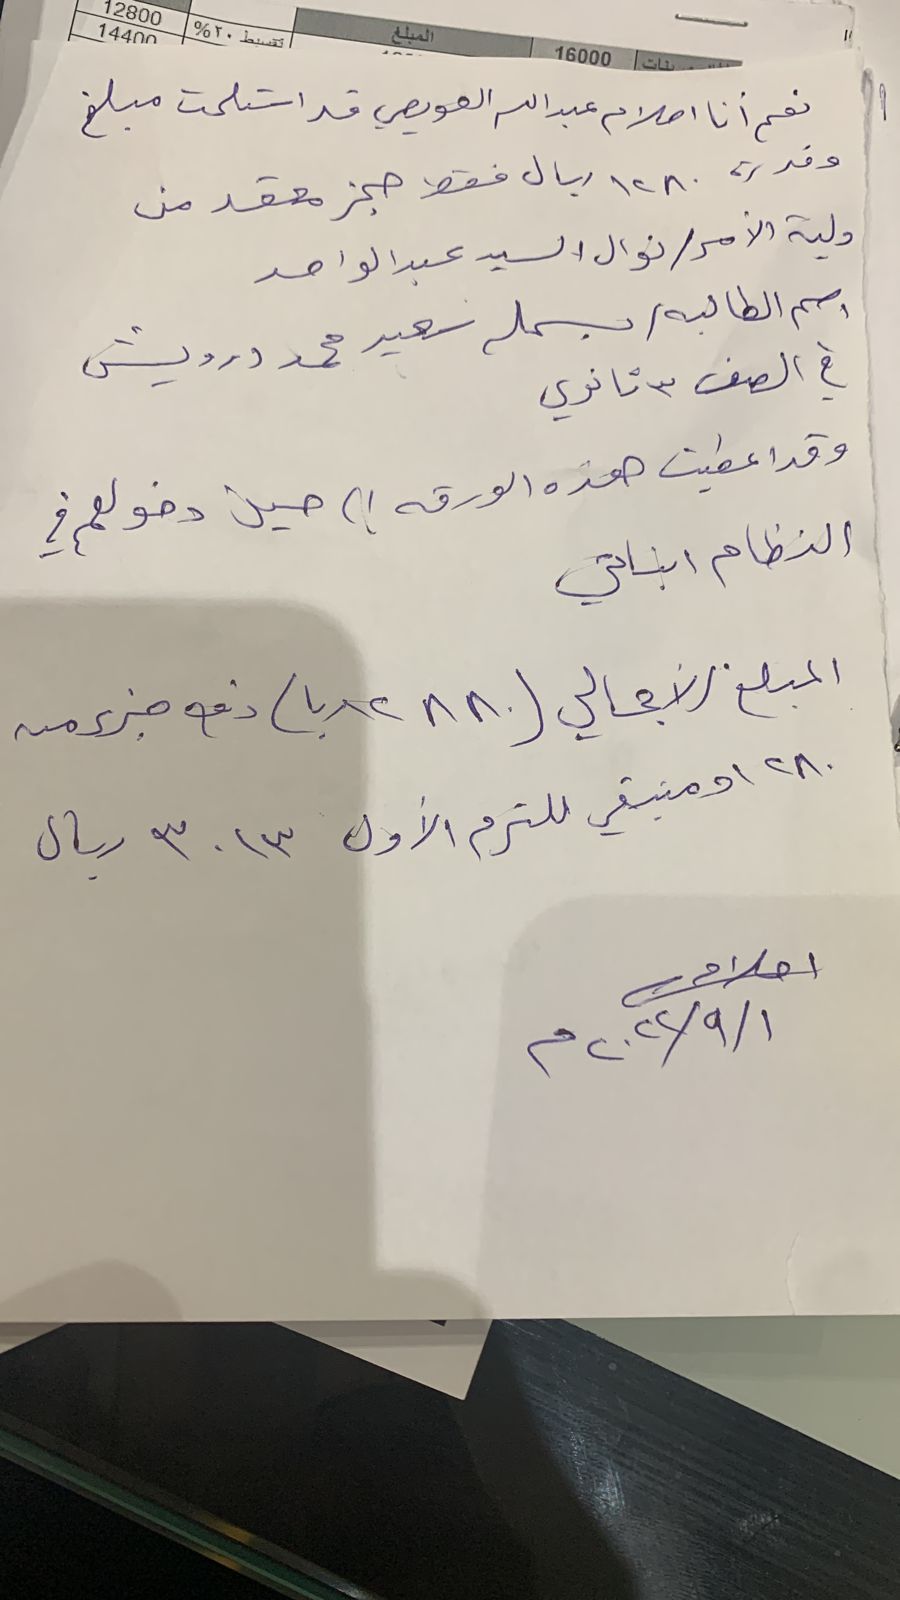 12800
14400
تقسيط ٢٠%
المبلغ
16000
نعم أنا احلام عبدالله العويصي قد استلمت مبلغ
وقدره ١٢٨٠ ريال فقط حجز مقعد من
ولية الأمر/ نوال السيد عبدالواحد
اسم الطالبه/ بسمله سعيد محمد درويش
في الصف ٣ ثانوي
وقد اعطيت هذه الورقه إلى حين دخولهم في
النظام
المبلغ الأجمالي (٢٨٨٠ دفع جزء منه
١٢٨٠ ومتبقي للترم الأول ٣٠١٣ ريال
احلام
٢٠٢٢/٩/١ م